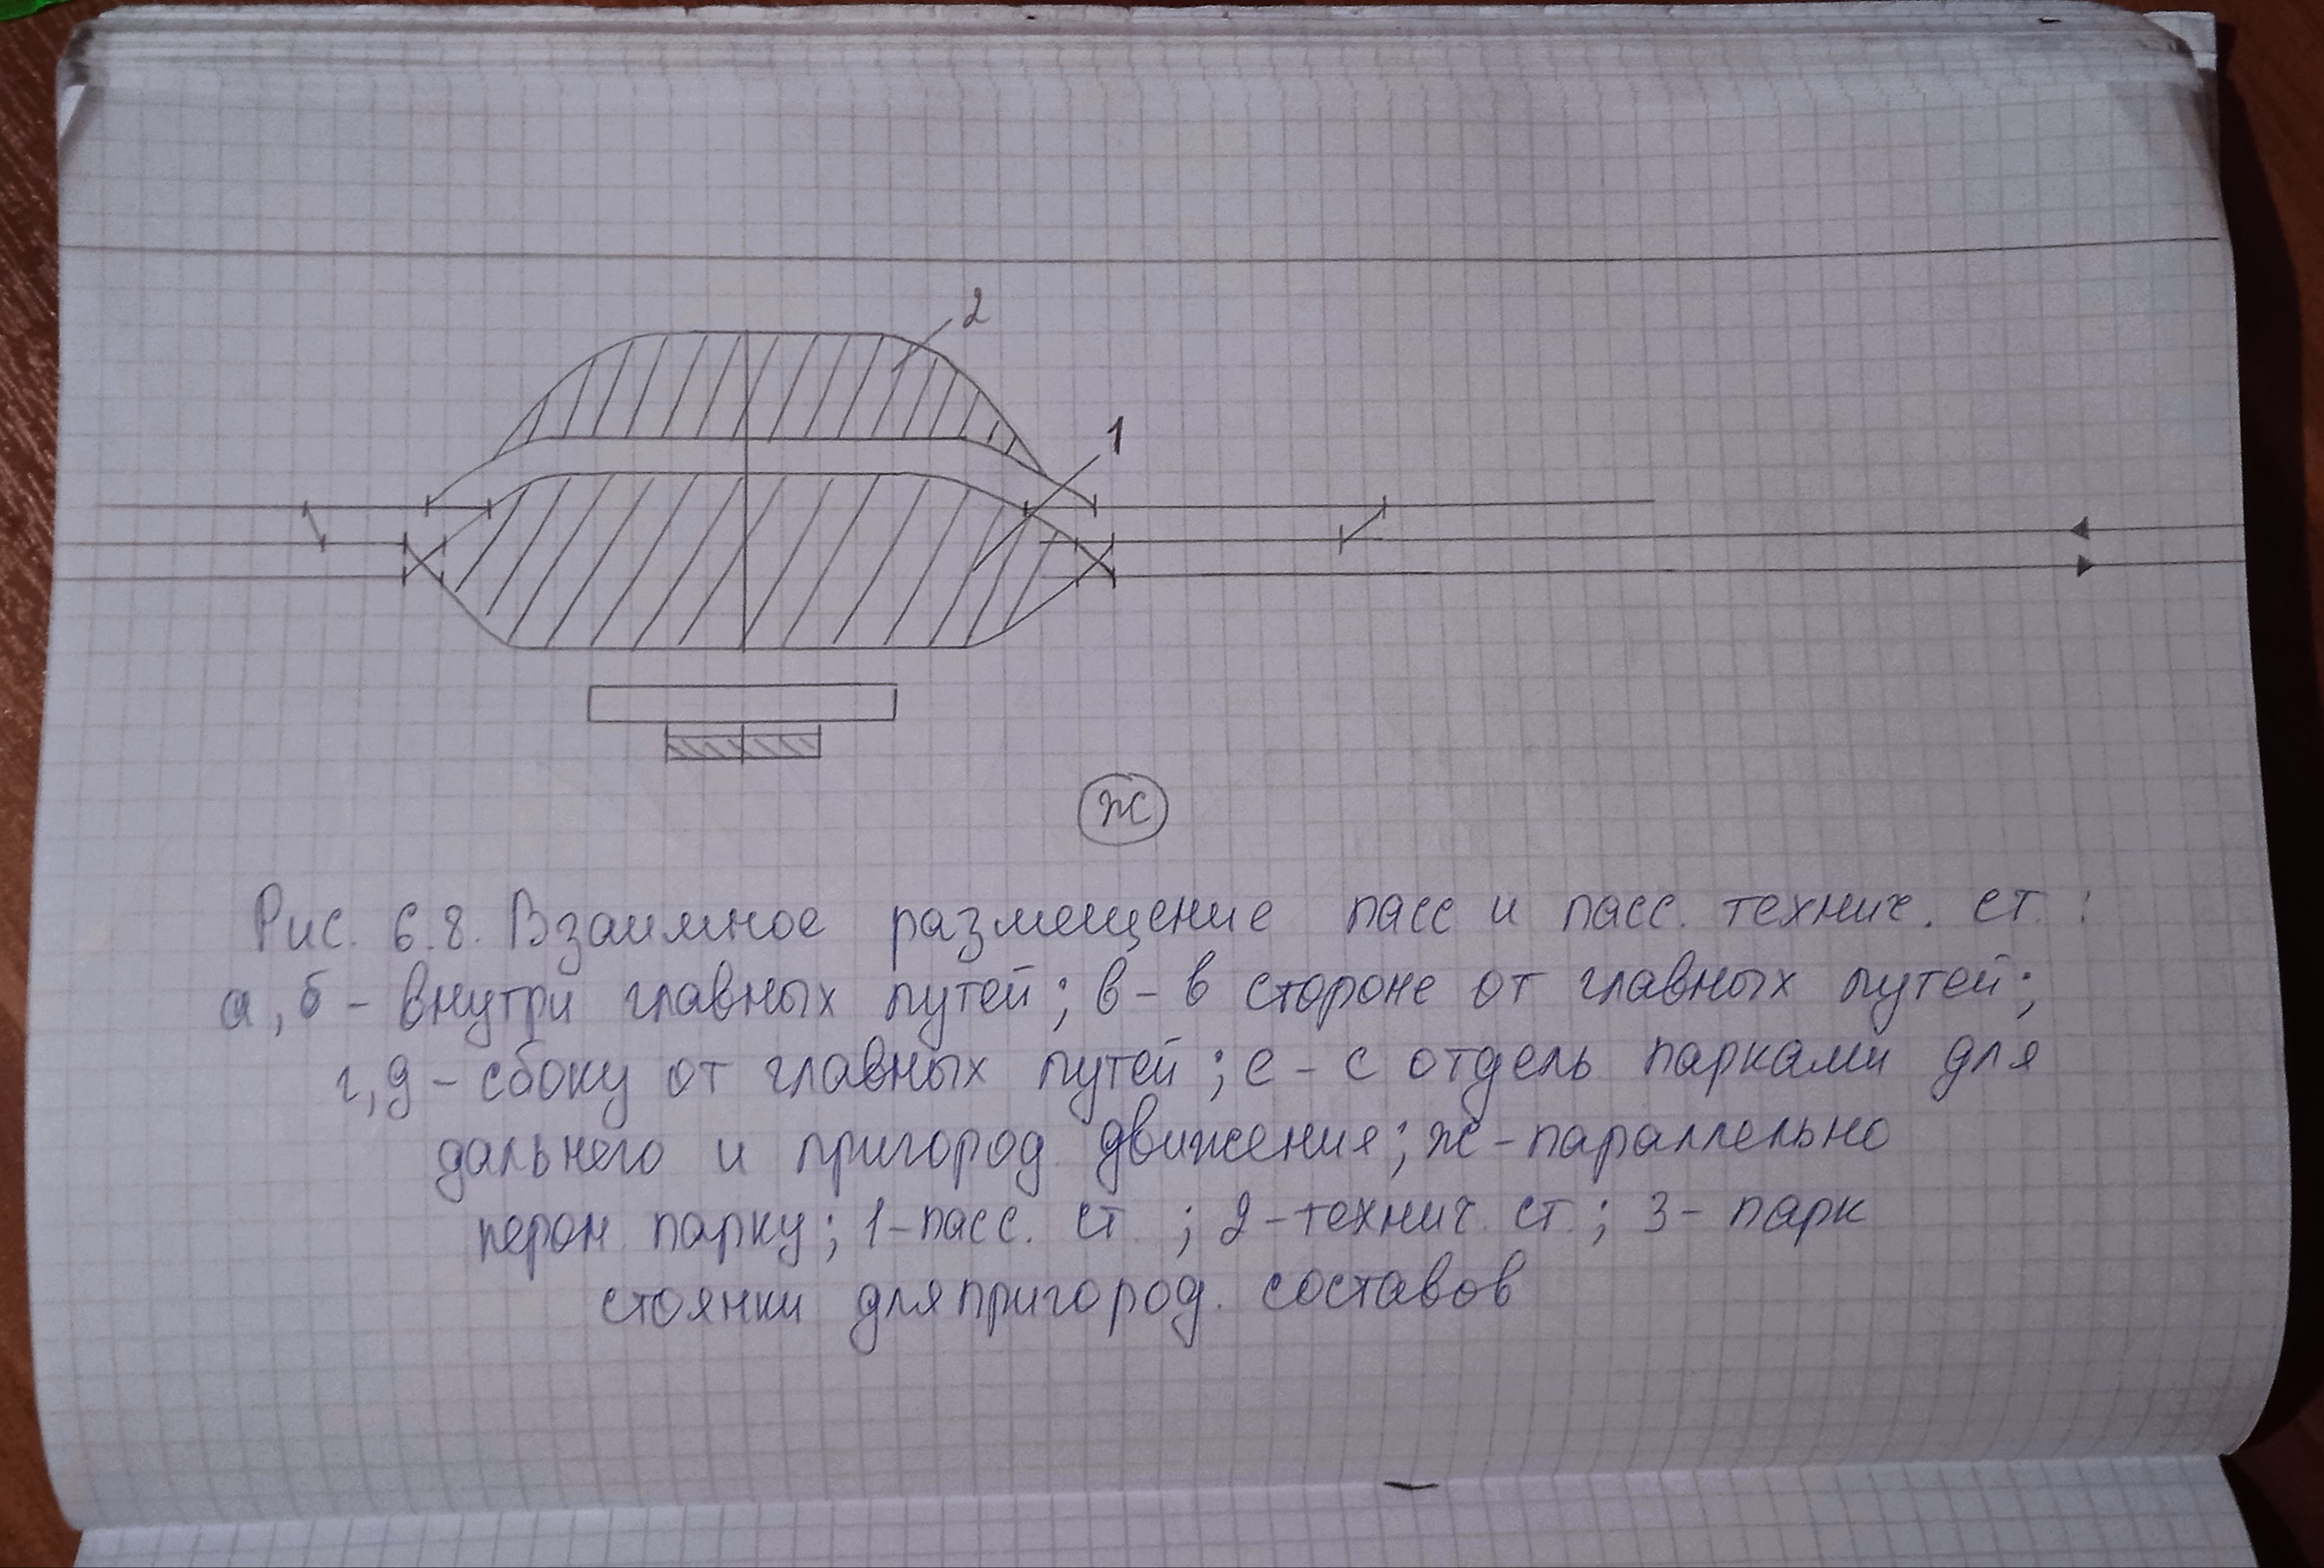 2
1
ж
Рис. 6.8. Взаимное размещение пасс и пасс. технич. ст. :
а, б - внутри главных путей; в - в стороне от главных путей;
г, д - сбоку от главных путей; е - с отдель парками для
дальнего и пригород движения; ж - параллельно
перон парку; 1-пасс. ст. ; 2-технич. ст. ; 3- парк
стоянки для пригород. составов